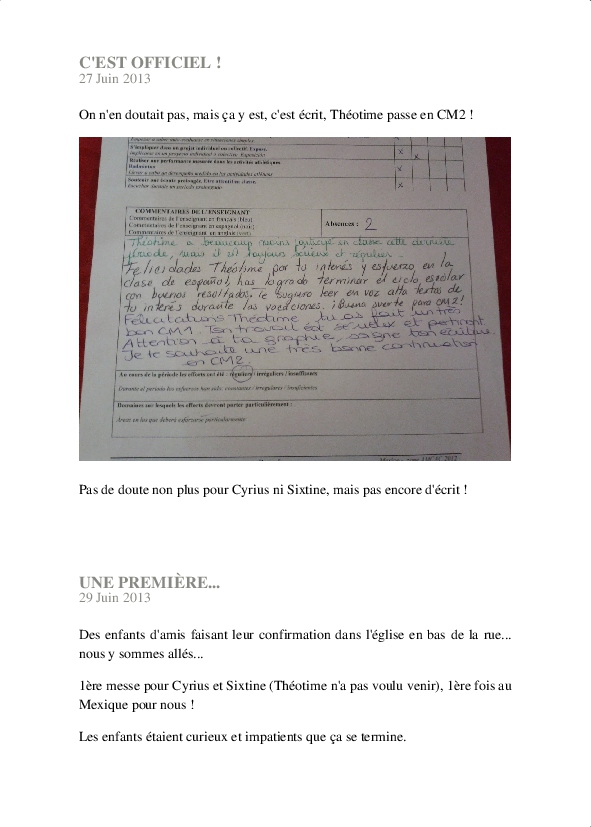 C'EST OFFICIEL !
27 Juin 2013
On n'en doutait pas, mais ça y est, c'est écrit, Théotime passe en CM2 !
S'impliquer dans un projet individuel ou collectif. Exposé.
x
x
Réaliser une performance mesurée dans les activités athlétiques
x
Soutenir une écoute prolongée, être attentif en classe.
x
COMMENTAIRES DE L'ENSEIGNANT
Commentaires de l'enseignant en français (bleu)
Commentaires de l'enseignant en espagnol (noir)
Commentaires de l'enseignant en anglais (vert)
Absences : 2
Théotime a beaucoup moins participé en classe cette dernière
période, mais il est toujours sérieux et régulier.
Felicidades Théotime por tu interés y esfuerzo en la
clase de español, has logrado terminar el ciclo escolar
con buenos resultados, te sugiero leer en voz alta textos de
tu interés durante las vacaciones. ¡Buena suerte para CM2!
Félicitations Théotime, tu as fait un très
bon CM1. Ton travail est sérieux et pertinent.
Attention à ta graphie, soigne ton écriture.
Je te souhaite une très bonne continuation
en CM2.
Au cours de la période les efforts ont été : réguliers / irréguliers / insuffisants
Durante el periodo los esfuerzos han sido: constantes / irregulares / insuficientes
Domaines sur lesquels les efforts devront porter particulièrement :
Areas en las que deberá esforzarse particularmente
Pas de doute non plus pour Cyrius ni Sixtine, mais pas encore d'écrit !
UNE PREMIÈRE...
29 Juin 2013
Des enfants d'amis faisant leur confirmation dans l'église en bas de la rue...
nous y sommes allés...
1ère messe pour Cyrius et Sixtine (Théotime n'a pas voulu venir), 1ère fois au
Mexique pour nous !
Les enfants étaient curieux et impatients que ça se termine.